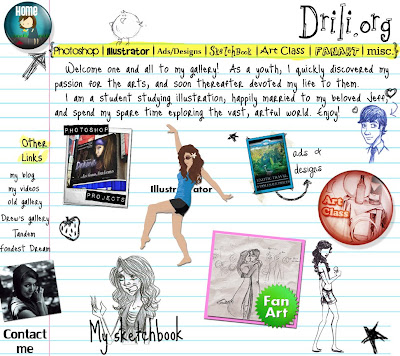 HOME
Drili.org
Photoshop | Illustrator | Ads/Designs | Sketchbook | Art Class | FANART | misc.
Welcome one and all to my gallery! As a youth, I quickly discovered my
passion for the arts, and soon thereafter devoted my life to them.
I am a student studying illustration, happily married to my beloved Jeff,
and spend my spare time exploring the vast, artful world. Enjoy!
Other
Links
my blog
my videos
old gallery
Drew's gallery
Tandem
fondest Dream
PHOTOSHOP
PROJECTS
Illustrator
ads &
designs
Art
Class
Fan
Art
My sketchbook
Contact
me